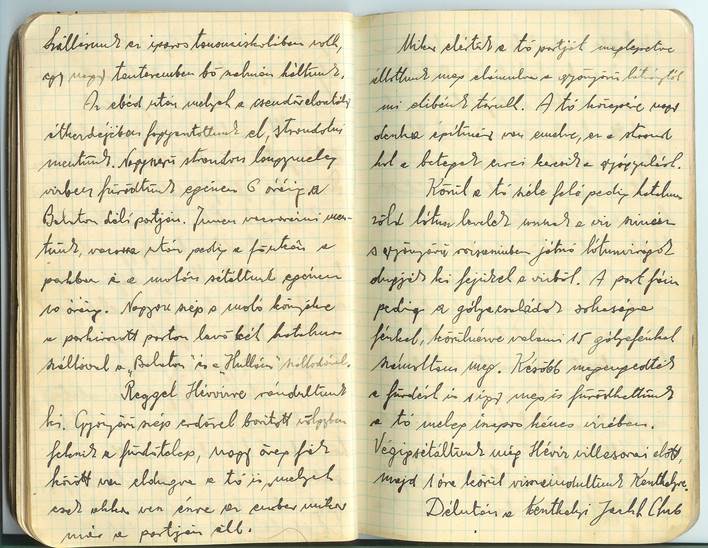 Szállásunk az iparos tanonciskolában volt,
egy nagy tanteremben bő szalmán háltunk.
Az ebéd után melyet a csendőrlaktanya
étkezdéjében fogyasztottunk el, strandolni
mentünk. Nagyszerű strandon langymeleg
vízben fürödtünk egészen 6 óráig a
Balaton déli partján. Innen vacsorázni men-
tünk, vacsora után pedig a főutcán a
parkban és a molón sétáltunk egészen
10 óráig. Nagyon szép a moló környéke
a parkírozott parton lévő két hatalmas
szállóval a „Balaton" és a Hullám" szállodával.
Reggel Hévízre rándultunk
ki. Gyönyörű szép erdővel borított völgyben
fekszik a fürdőtelep, nagy öreg fák
között van eldugva a tó is, melyet
csak akkor vesz észre az ember mikor
már a partján áll.
Mikor elértük a tó partját meglepetve
állottunk meg elámulva a gyönyörű látványtól
mi elibénk tárult. A tó közepére nagy
deszka építmény van emelve, ez a strand
hol a betegek ezrei keresik a gyógyulást.
Körül a tó széle felé pedig hatalmas
zöld lótusz levelek úsznak a víz színén
s gyönyörű rózsaszínben játszó lótuszvirágok
dugják ki fejüket a vízből. A part fáin
pedig a gólyacsaládok sokasága
fészkel, körülnézve valami 15 gólyafészket
számoltunk meg. Később megengedték
a fürdést is s így mi is fürödhettünk
a tó meleg iszapos kénes vizében.
Végigsétáltunk még Hévíz villasorai előtt
majd 1 óra körül visszaindultunk Keszthelyre.
Délután a Keszthelyi Jacht Club